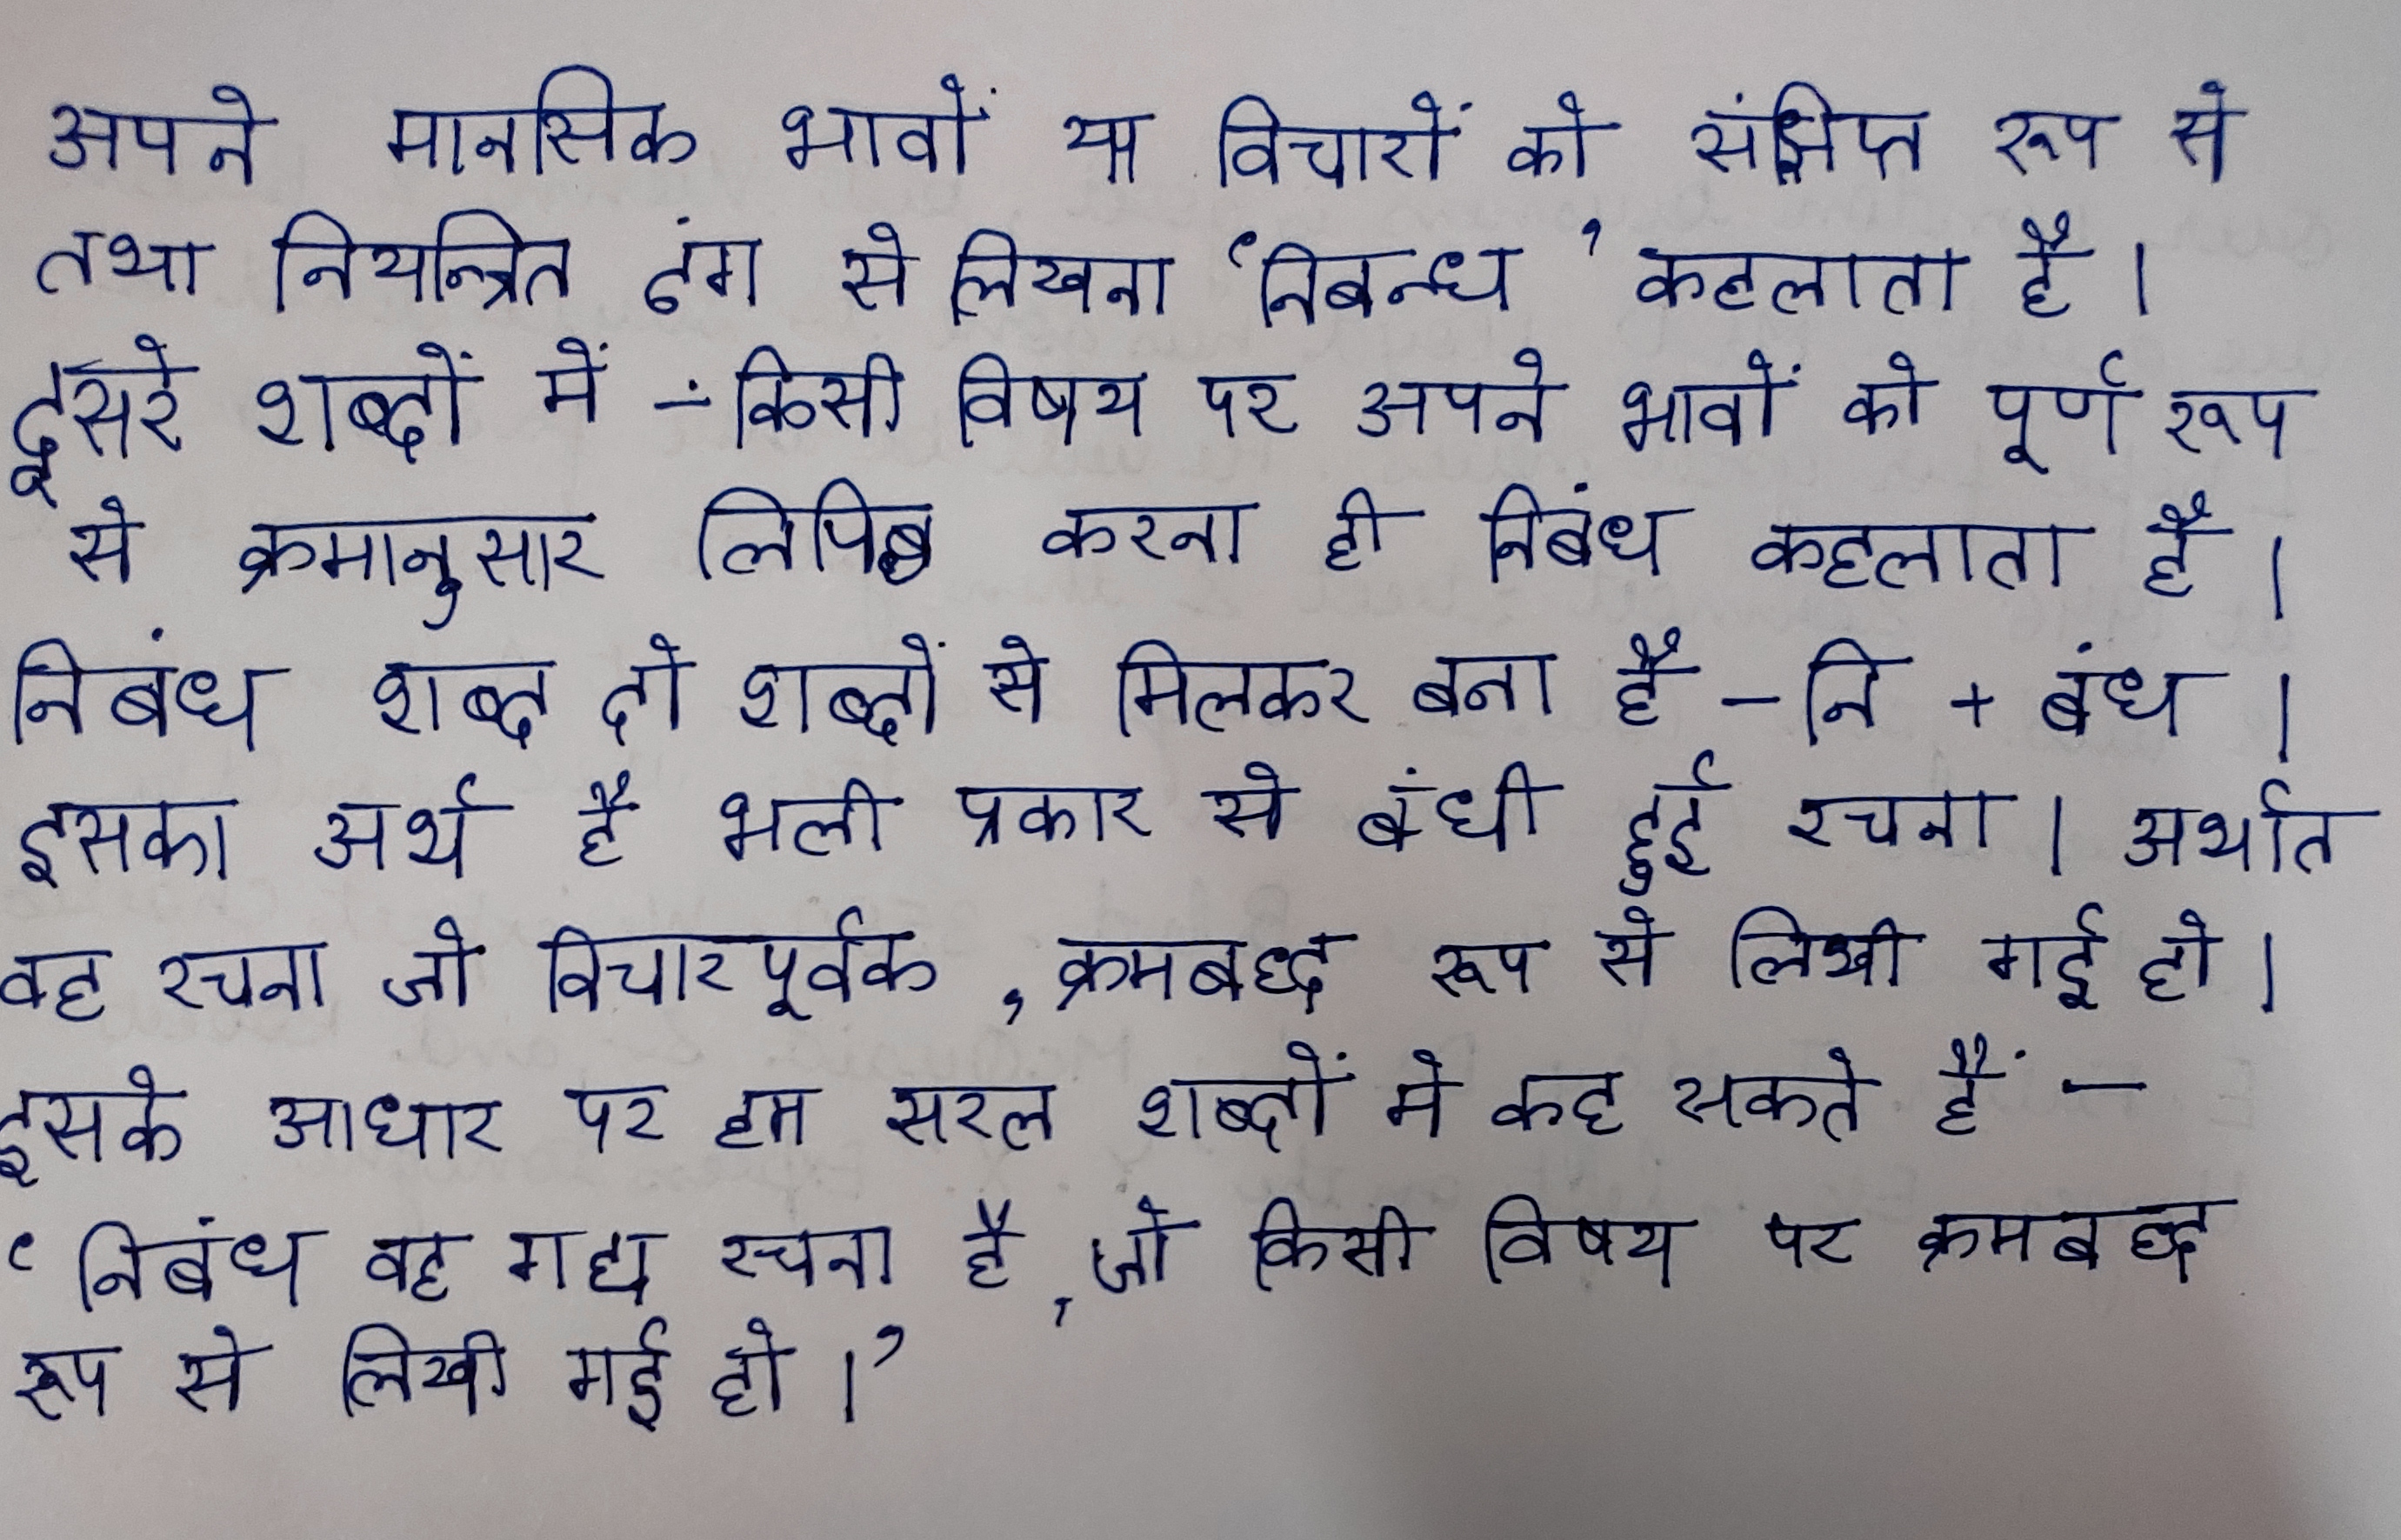 अपने मानसिक भावों या विचारों को संक्षिप्त रूप से
तथा नियन्त्रित ढंग से लिखना ‘निबन्ध’ कहलाता है।
दूसरे शब्दों में -: किसी विषय पर अपने भावों को पूर्ण रूप
से क्रमानुसार करना ही निबंध कहलाता है।
निबंध शब्द दो शब्दों से मिलकर बना है - नि + बंध।
इसका अर्थ है भली प्रकार से बंधी हुई रचना। अर्थात
वह रचना जो विचारपूर्वक, क्रमबध्द रूप से लिखी गई हो।
इसके आधार पर हम सरल शब्दों मे कह सकते हैं -
‘निबंध वह गद्य रचना है, जो किसी विषय पर क्रमबध्द
रूप से लिखी गई हो।’